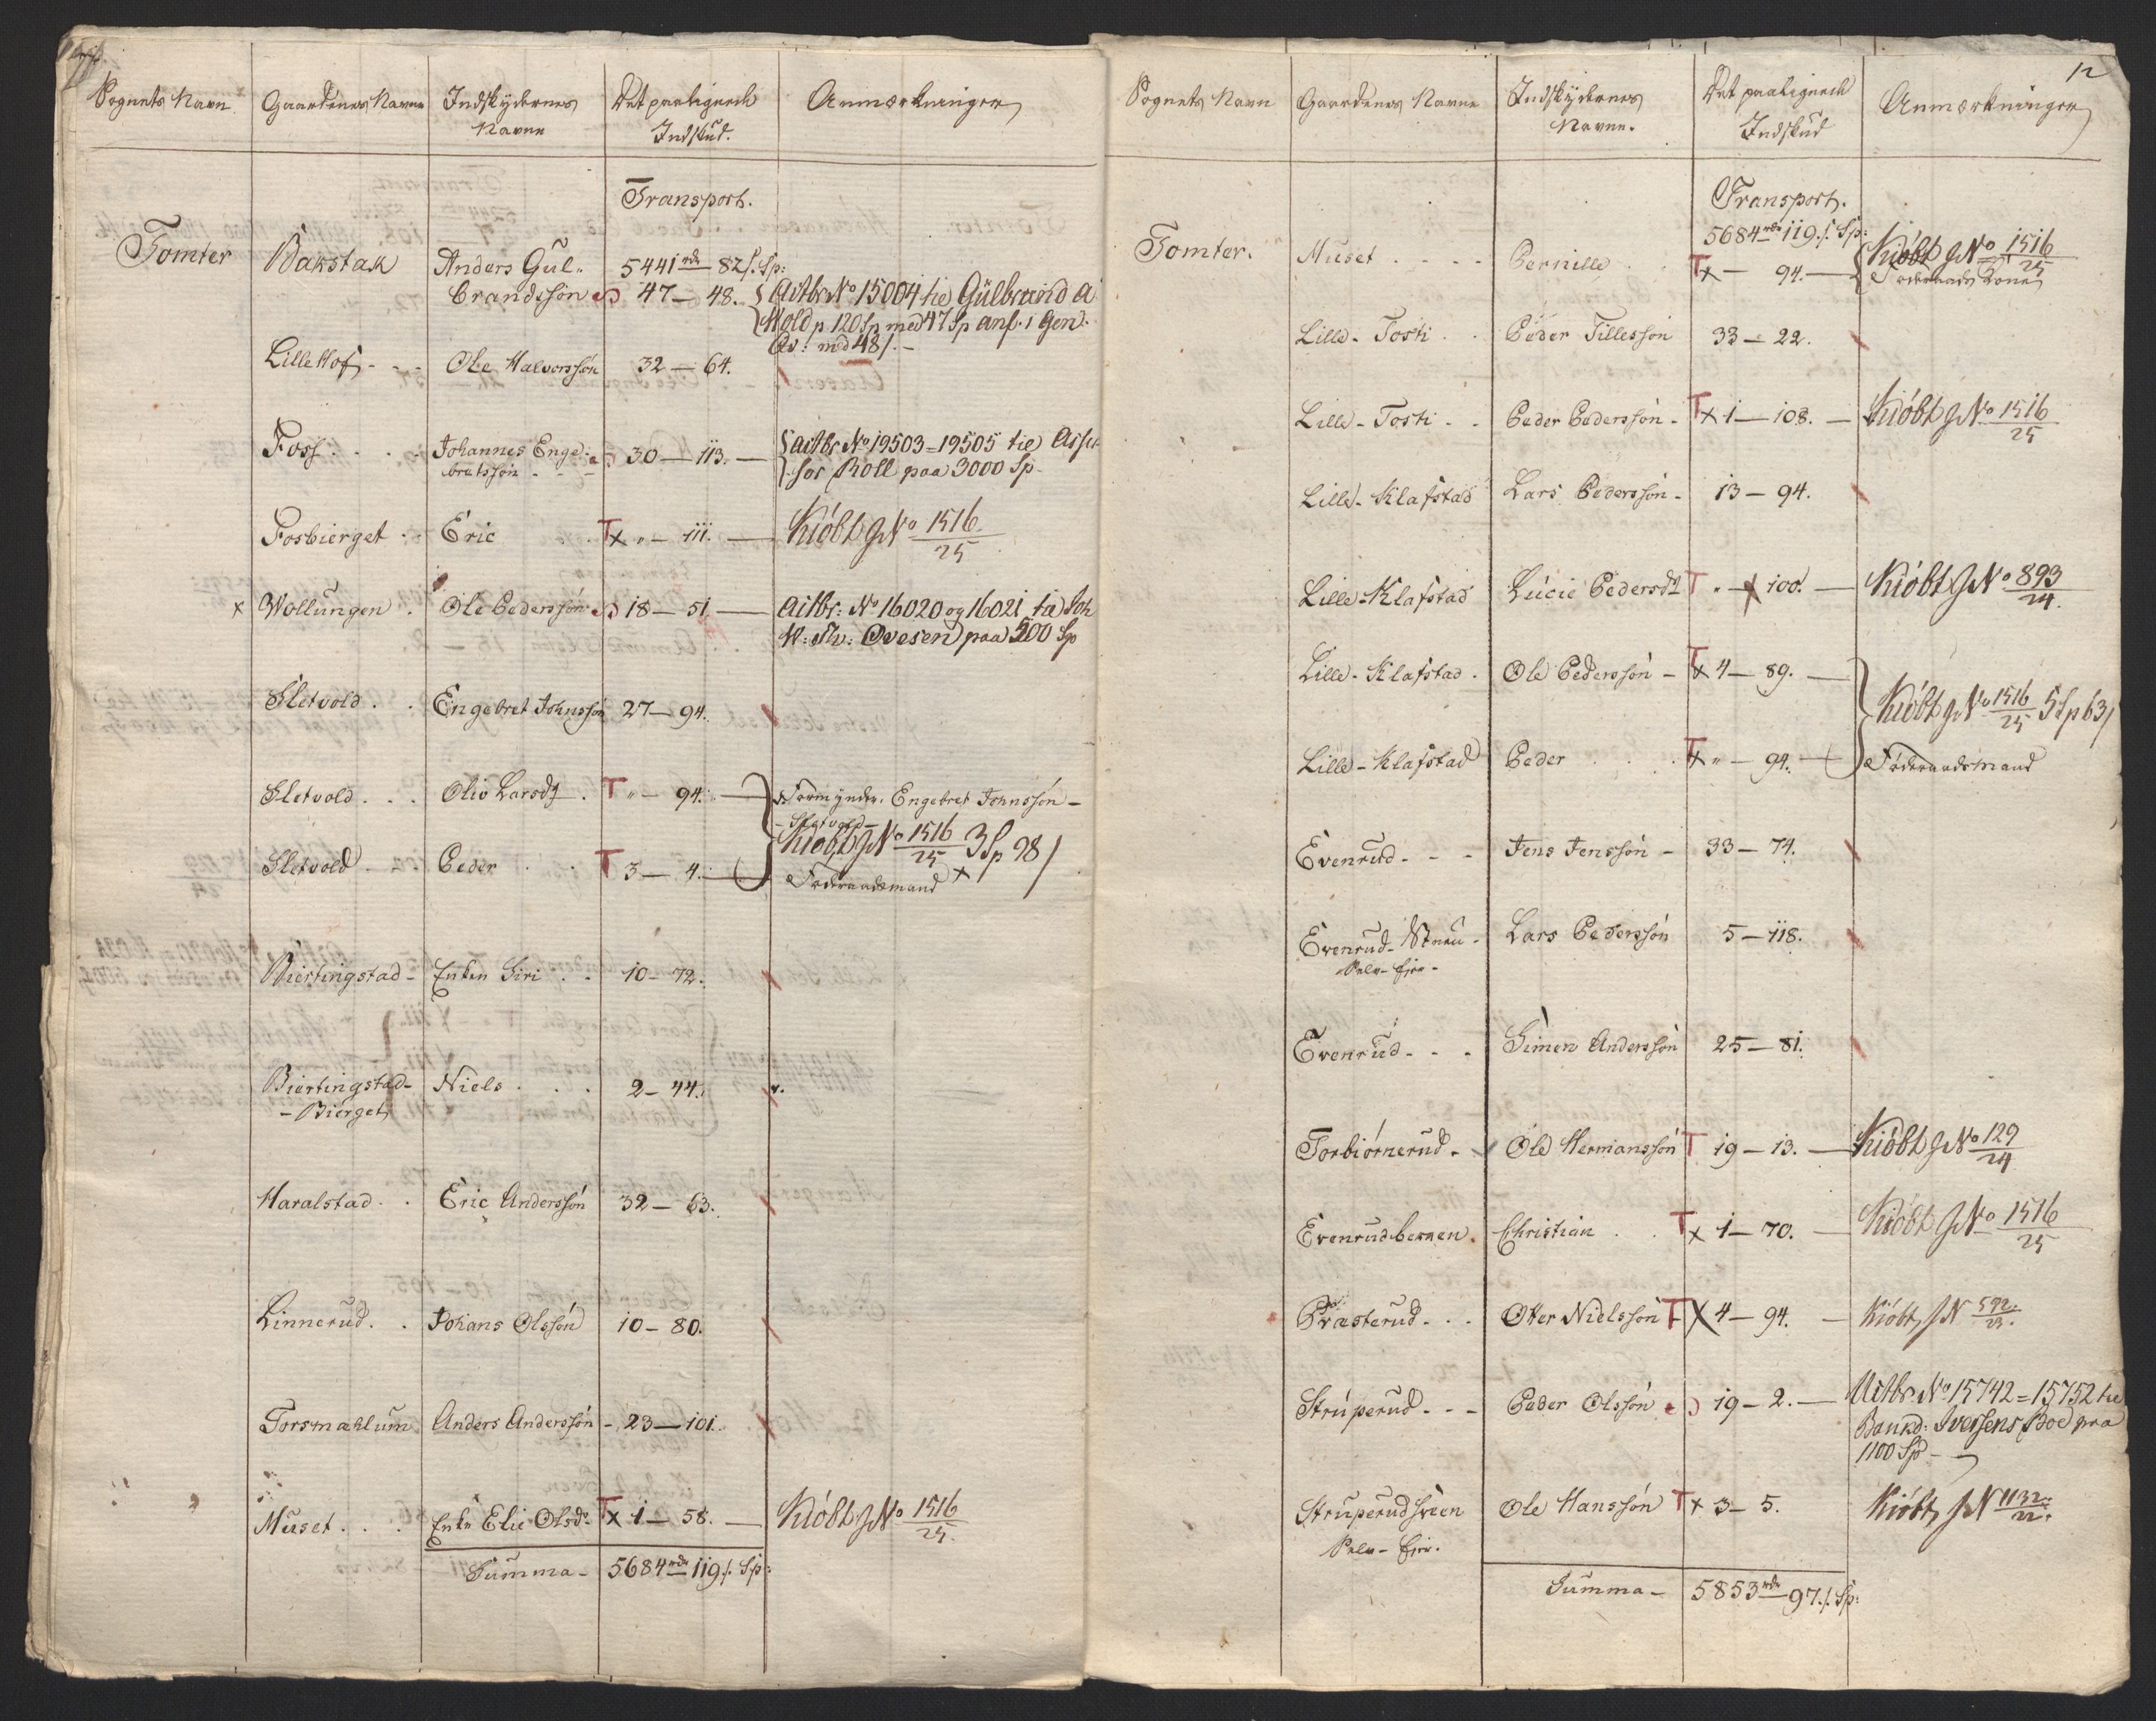 Sognets Navn Gaardenes Navne Indskydernes Navne Det paalignede Indskud. Anmærkninger
Transport.
5441 rdr 82 s. Sp:
Tomter Bakstak Anders Gul-
brandssøn 47 — 48. Actbr No 15004 til Gülbrand
Hold p 120 Sp med 47 Sp anf. i Gen.
med 48 s. —
Lille Hof - - - Ole Halvorssøn 32 — 64.
Foss . . . Johannes Enge-
bretssøn - - - 30 — 113. — Actbr No 19503 = 19505 til Asses-
sor Roll paa 3000 Sp
Fosbierget . . Eric T x „ — 111. — Kiöbt J No 1516/25
x Wollungen . Ole Pederssøn 18 — 51. — Actbr: No 16020 og 16021 Joh
Ovesen paa 500 Sp
Sletvold . . Engebret Johnssøn 27 — 94.
Sletvold . . . Olio Larsdr . T „ — 94. — Formynder. Engebret Johnssøn -
- Sletvold -
Kiöbt J No 1516/25 3 Sp 98 s
Sletvold . . . Peder . . T 3 — 4. — Føderaadsmand x
Biertingstad - Enken Siri . . 10 — 72.
Biertingstad-
- Bierget Niels . . . 2 — 44.
Haralstad . . Eric Anderssøn 32 — 63.
Linnerud . . Johans Olssøn 10 — 80.
Torsmæhlum Anders Anderssøn - 23 — 101.
Muset . . . Enke Elie Olsdr T x 1 — 58. — Kiöbt J No 1516/25.
Summa - 5684 rdr 119 s. Sp:
12
Sognets Navn Gaardenes Navne Indskydernes Navne. Det paalignede Indskud Anmærkninger
Transport.
5684 rdr 119 s. Sp:
Tomter. Muset . . . . Pernille . . T x — 94. — Kiöbt J No 1516/25
Føderaads Kone
Lille - Tosti . . Peder Tillessøn 33 — 22.
Lille - Tosti . . Peder Pederssøn - T x 1 — 108. — Kiöbt J No 1516/25
Lille - Klafstad Lars Pederssøn - 13 — 94.
Lille - Klafstad Lucie Pedersdr T „ — x 100. — Kiöbt J No 893/24.
Lille - Klafstad . Ole Pederssøn - T x 4 — 89. —
Kiöbt J No 1516/25 5 Sp 63 s
Lille - Klafstad Peder . . . T x „ — 94. — Føderaadsmand
Evenrud - - - Jens Jenssøn - 33 — 74.
Evenrud -
Selv - Eier - Lars Pederssøn 5 — 118.
Evenrud - - - Simen Anderssøn 25 — 81.
Torbiørnerud - Ole Hermanssøn T 19 — 13. — Kiöbt J No 129/24
Evenrudbernen . Christian . . T x 1 — 70. — Kiöbt J No 1516/25
Præsterud - . . Oter Nielssøn T x 4 — 94. — Kiöbt, J N 592/23.
Struperud - - - Peder Olssøn 19 — 2. — Actbr No 15742 = 15752 til
Bankd: Iversens Boe paa
1100 Sp —
Struperudsveen Ole Hanssøn T x 3 — 5. Kiöbt, J N 1132/22.
Selv - Eier.
Summa - 5853 rdr 97 s. Sp: